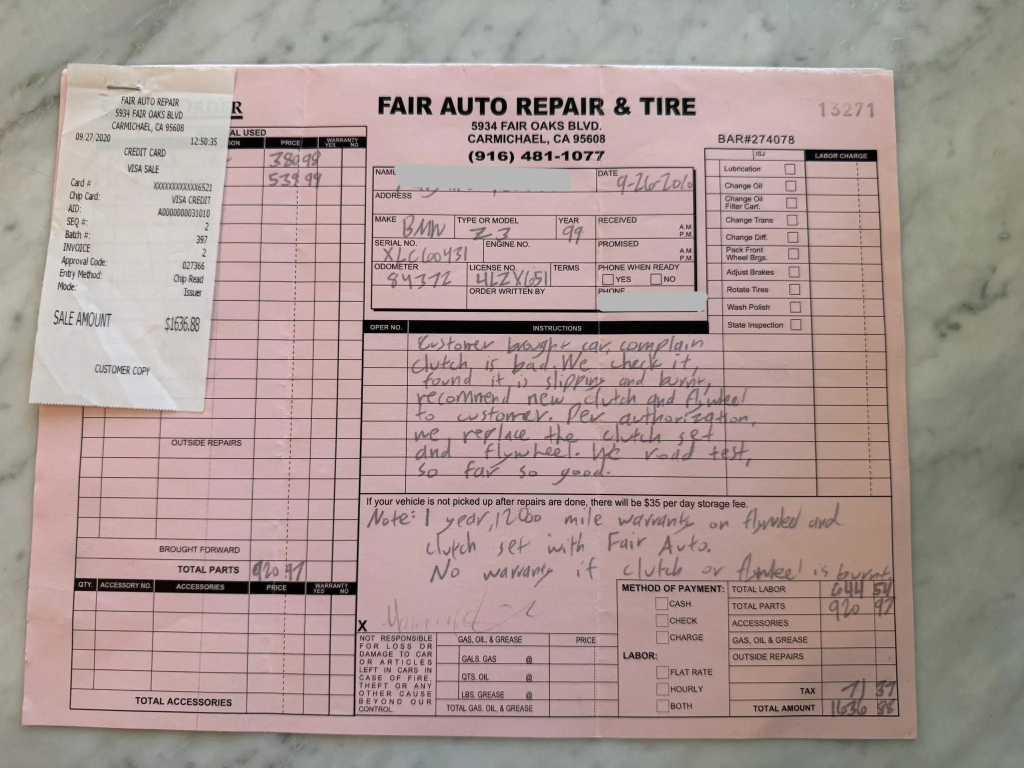 FAIR AUTO REPAIR
5934 FAIR OAKS BLVD
CARMICHAEL, CA 95608
09/27/2020 12:50:35
CREDIT CARD
VISA SALE
Card # XXXXXXXXXXXX6521
Chip Card: VISA CREDIT
AID: A0000000031010
SEQ #: 2
Batch #: 397
INVOICE 2
Approval Code: 027366
Entry Method: Chip Read
Mode: Issuer
SALE AMOUNT $1636.88
CUSTOMER COPY
AL USED
ION PRICE WARRANTY YES NO
380.98
539.99
OUTSIDE REPAIRS
BROUGHT FORWARD
TOTAL PARTS 920.97
QTY. ACCESSORY NO. ACCESSORIES PRICE WARRANTY YES NO
TOTAL ACCESSORIES
FAIR AUTO REPAIR & TIRE
5934 FAIR OAKS BLVD.
CARMICHAEL, CA 95608
(916) 481-1077
13271
BAR#274078
NAME
DATE 9-26-2020
ADDRESS
MAKE BMW
TYPE OR MODEL Z3
YEAR 99
RECEIVED A.M. P.M.
SERIAL NO. XLC100431
ENGINE NO.
PROMISED A.M. P.M.
ODOMETER 84372
LICENSE NO. 4LZX651
TERMS
PHONE WHEN READY YES NO
ORDER WRITTEN BY
PHONE
LABOR CHARGE
Lubrication
Change Oil
Change Oil
Filter Cart.
Change Trans
Change Diff.
Pack Front
Wheel Brgs.
Adjust Brakes
Rotate Tires
Wash Polish
State Inspection
OPER NO. INSTRUCTIONS
Customer brought car, complain
clutch is bad. We check it,
found it is slipping and burnt,
recommend new clutch and flywheel
to customer. Per authorization,
we replace the clutch set
and flywheel. We road test,
so far so good.
If your vehicle is not picked up after repairs are done, there will be $35 per day storage fee.
Note: 1 year, 12000 mile warranty on flywheel and
clutch set with Fair Auto.
No warranty if clutch or flywheel is burnt
X
NOT RESPONSIBLE
FOR LOSS OR
DAMAGE TO CAR
OR ARTICLES
LEFT IN CARS IN
CASE OF FIRE,
THEFT OR ANY
OTHER CAUSE
BEYOND OUR
CONTROL.
GAS, OIL, & GREASE PRICE
GALS. GAS @
QTS. OIL @
LBS. GREASE @
TOTAL GAS, OIL, & GREASE
METHOD OF PAYMENT:
CASH
CHECK
CHARGE
LABOR:
FLAT RATE
HOURLY
BOTH
TOTAL LABOR 644 54
TOTAL PARTS 920 97
ACCESSORIES
GAS, OIL & GREASE
OUTSIDE REPAIRS
TAX 71 37
TOTAL AMOUNT 1636 88